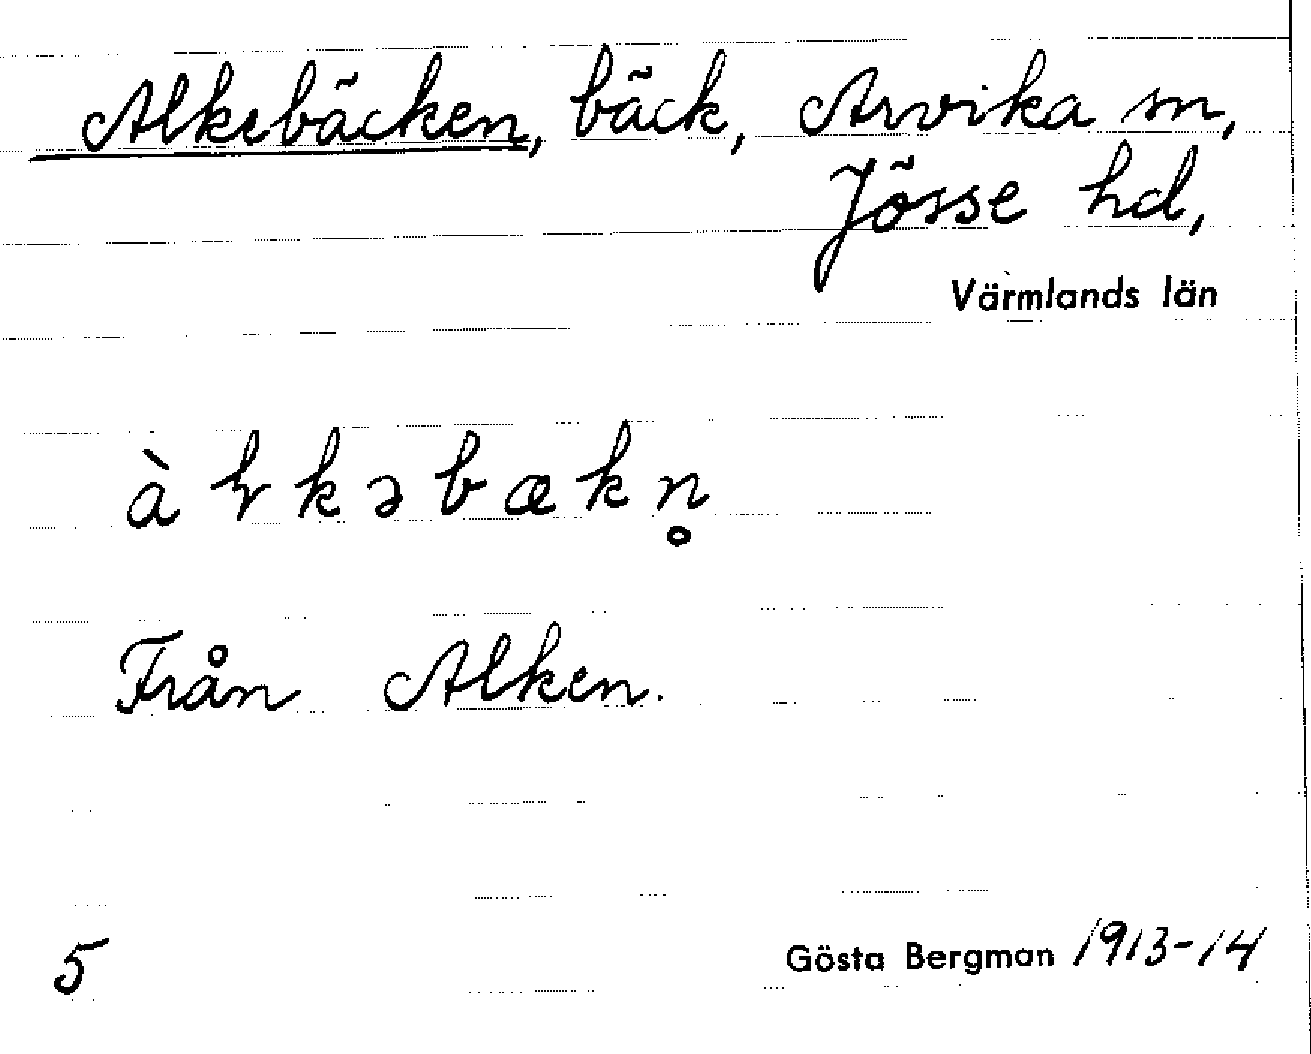 Alkebäcken, bäck, Arvika sn,
Jösse hd,
Värmlands län
àɽkəbækn̥
Från Alken.
5
Gösta Bergman 1913-14